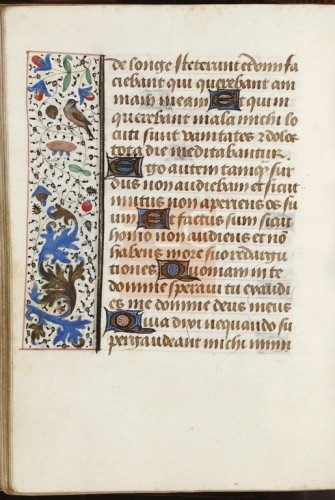 de longe steterunt et vim fa
ciebant qui querebant am
mam meam Et qui in
quirebant mala michi lo
cuti sunt vanitates z dolos
tota die meditabantur.
Ego autem tamq̄ sur
dus non audiebam et sicut
mutus non aperiens os su
um Et factus sum sicut
homo non audiens et nō
habens in ore suo redargu
tiones Quoniam in te
domine speraui tu exaudi
es me domine deus meus
Quia dixi nequando su
pergaudeant michi inimi